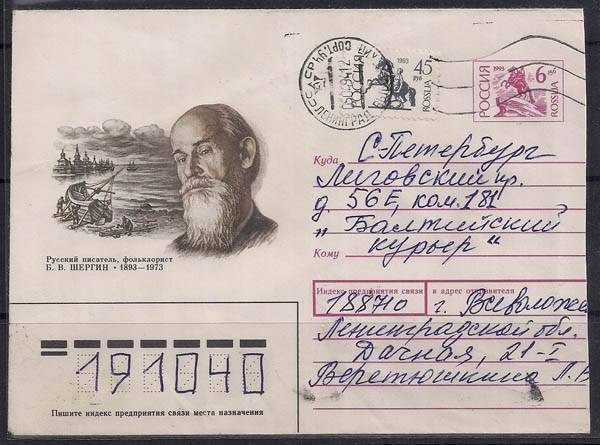 РОССИЯ
1993
45
руб
ROSSIJA
РОССИЯ
1993
6
руб
ROSSIJA
ЛЕНИНГРАД
Куда
С-Петербург
Лиговский пр.
д. 56Е, ком. 181
„Балтийский
Кому
курьер"
Русский писатель, фольклорист
Б. В. ШЕРГИН • 1893—1973
Индекс предприятия связи и адрес отправителя
188710 г. Всеволожс
Ленинградской обл.
Дачная, 21-I
Веретюшкина Л. В
191040
Пишите индекс предприятия связи места назначения